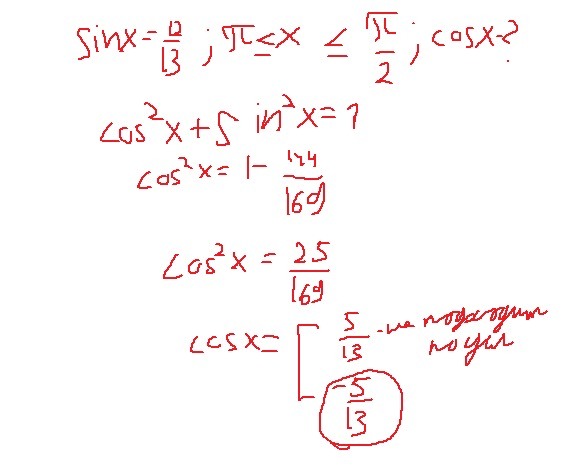 sinx = 12/13 ; π ≤ x ≤ π/2 ; cosx - ?
cos²x + sin²x = 1
cos²x = 1 - 144/169
cos²x = 25/169
cosx = [ 5/13 - не подходит
по усл
-5/13